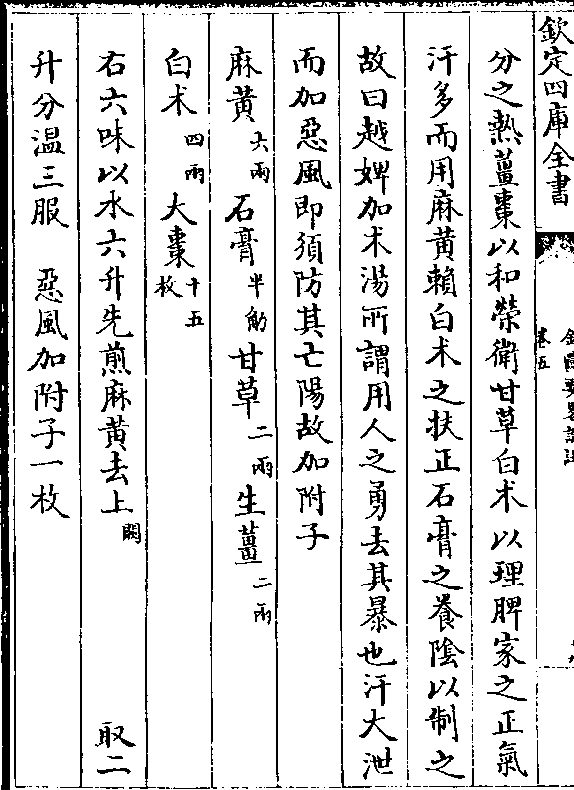 欽定四庫全書
卷五
分之熱薑棗以和榮衛甘草白术以理脾家之正氣
汗多而用麻黃賴白术之扶正石膏之養陰以制之
故曰越婢加术湯所謂用人之勇去其暴也汗大泄
而加惡風即須防其亡陽故加附子
麻黃六兩 石膏半觔 甘草二兩 生薑二兩
白术四兩 大棗十五枚
右六味以水六升先煎麻黃去上闕 取二
升分溫三服 惡風加附子一枚